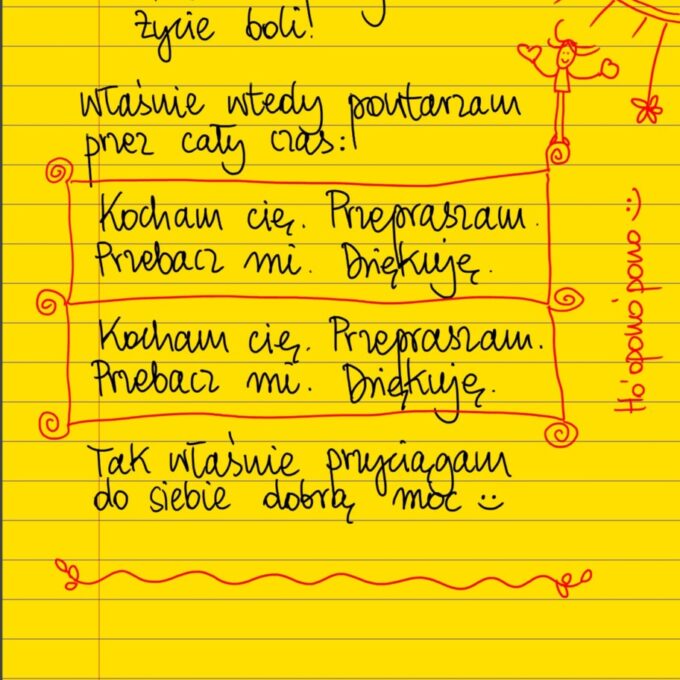 życie boli!
właśnie wtedy powtarzam
przez cały czas:
Kocham cię. Przepraszam.
Przebacz mi. Dziękuję.
Kocham cię. Przepraszam.
Przebacz mi. Dziękuję.
Tak właśnie przyciągam
do siebie dobrą moc :)
Ho'opono'pono :)